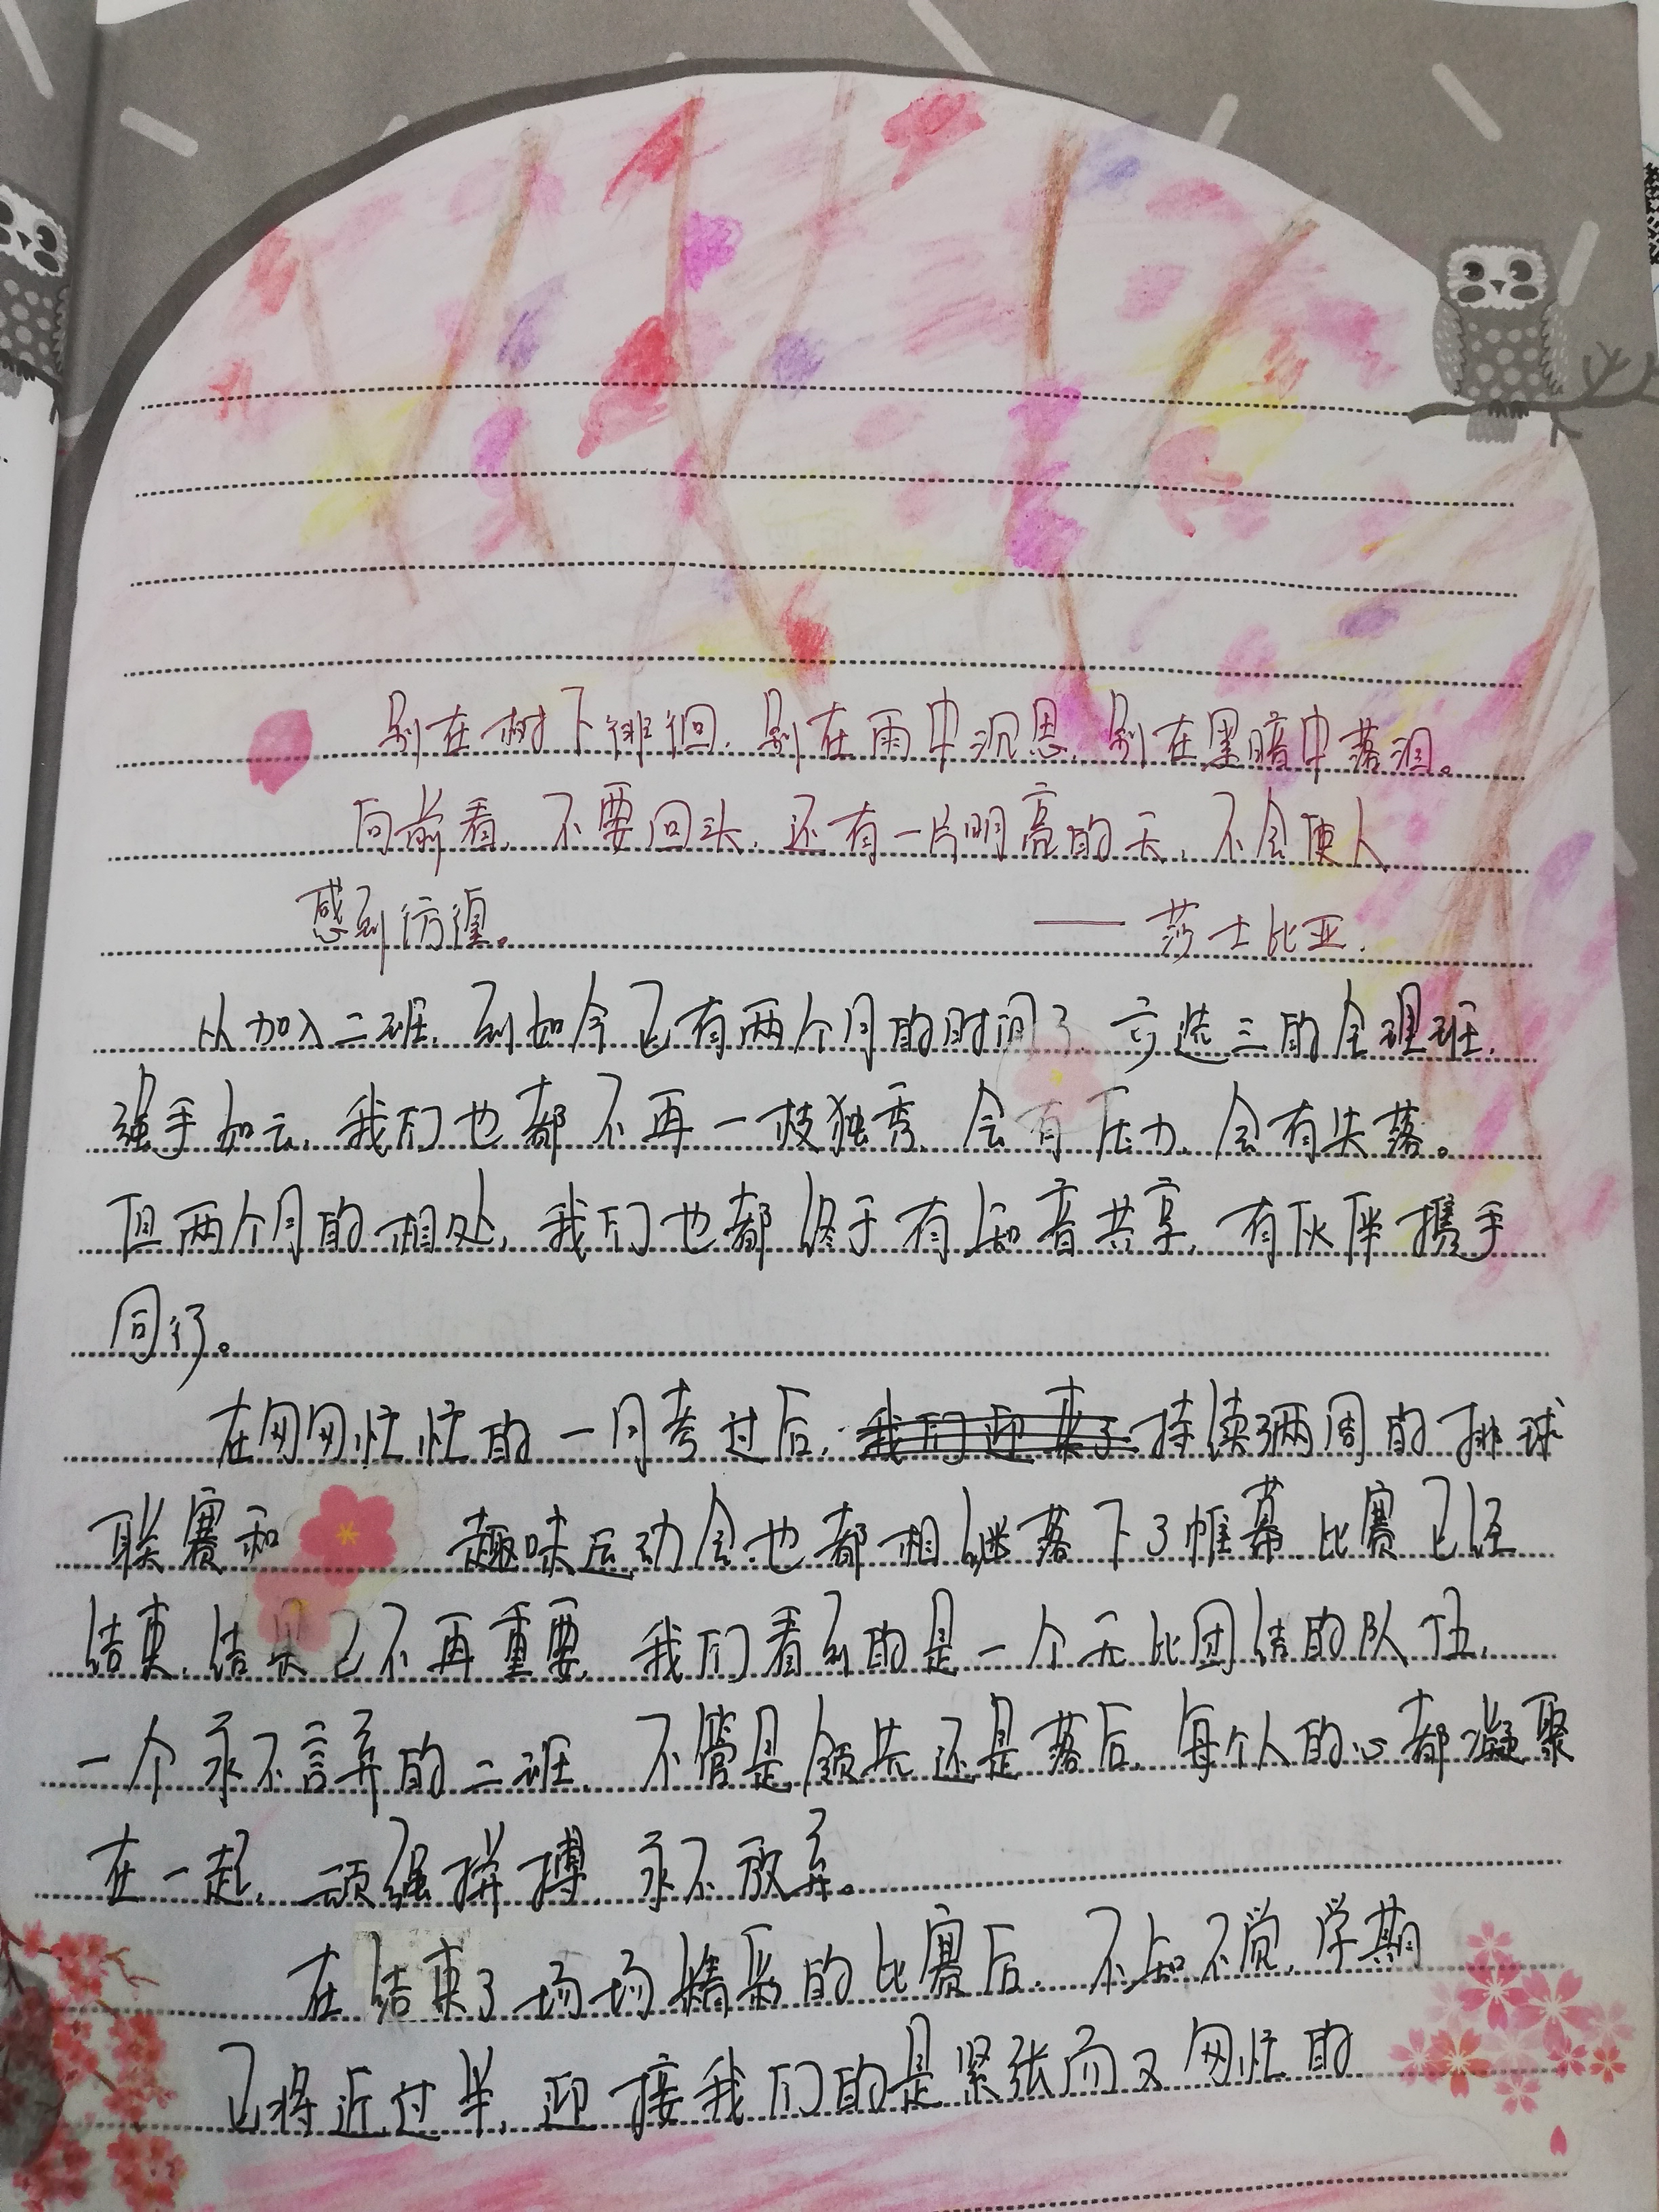 别在树下徘徊，别在雨中沉思，别在黑暗中落泪。
向前看，不要回头，还有一片明亮的天，不会使人
感到彷徨。 —— 莎士比亚.
从加入二班，到如今已有两个月的时间了，六选三的全理班，
强手如云，我们也都不再一枝独秀，会有压力，会有失落。
但两个月的相处，我们也都终于有知音共享，有伙伴携手
同行。
在匆匆忙忙的一月考过后，我们迎来了持续了两周的排球
联赛和 趣味运动会也都相继落下了帷幕，比赛已经
结束，结果已不再重要，我们看到的是一个无比团结的队伍，
一个永不言弃的二班，不管是领先还是落后，每个人的心都凝聚
在一起，顽强拼搏，永不放弃。
在结束了场场精彩的比赛后，不知不觉，学期
已将近过半，迎接我们的是紧张而又匆忙的